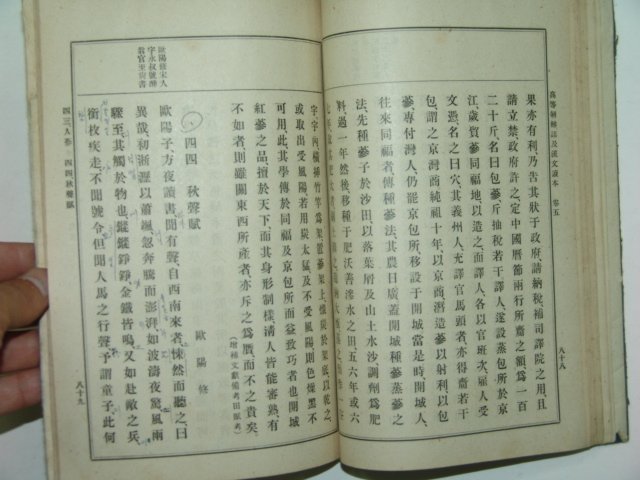 高等朝鮮語及漢文讀本 卷五
八十八
果亦有利乃告其狀于政府請納稅補司譯院之用且
請立禁政府許之定中國曆節兩行所齎之額爲一百
二十斤名曰包蔘斤抽稅若干譯人遂設蒸包所於京
江歲貿蔘同福地以造之而譯人各以官班次雇人受
文憑名之曰穴其義州人充譯官馬頭者亦得齎若干
包謂之京灣商純祖十年以京商造蔘以射利以包
蔘專付灣人仍罷京包所移設于開城當是時開城人
往來同福者傳種蔘法其農日廣蓋開城種蔘蒸蔘之
法先種蔘子於沙田以落葉屑及山土水沙調劑爲肥
料過一年然後移種于肥沃善滲水之田五六年或六
字宇內橫掃竹竿爲架置蔘架上熾炭於架底以乾之
或取出受風陽若用炭太猛及不受風陽則色煙黑不
可用此其學傳於同福及京包所而益致巧者也開城
紅蔘之品擅於天下而其身形制樣淸人皆能審熟有
不如者則雖關東西所產者亦斥之爲贋而不之貴矣
(增補文獻備考田賦考)
四四 秋聲賦
歐陽修
歐陽子方夜讀書聞有聲自西南來者悚然而聽之曰
異哉初淅瀝以蕭颯忽奔騰而澎湃如波濤夜驚風雨
驟至其觸於物也鏦鏦錚錚金鐵皆鳴又如赴敵之兵
銜枚疾走不聞號令但聞人馬之行聲予謂童子此何
歐陽修宋人
字永叔號醉
翁官至尚書
四三人蔘 四四秋聲賦
八十九